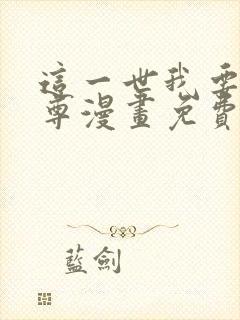 這一世我要
尊漫畫免費
藍劍